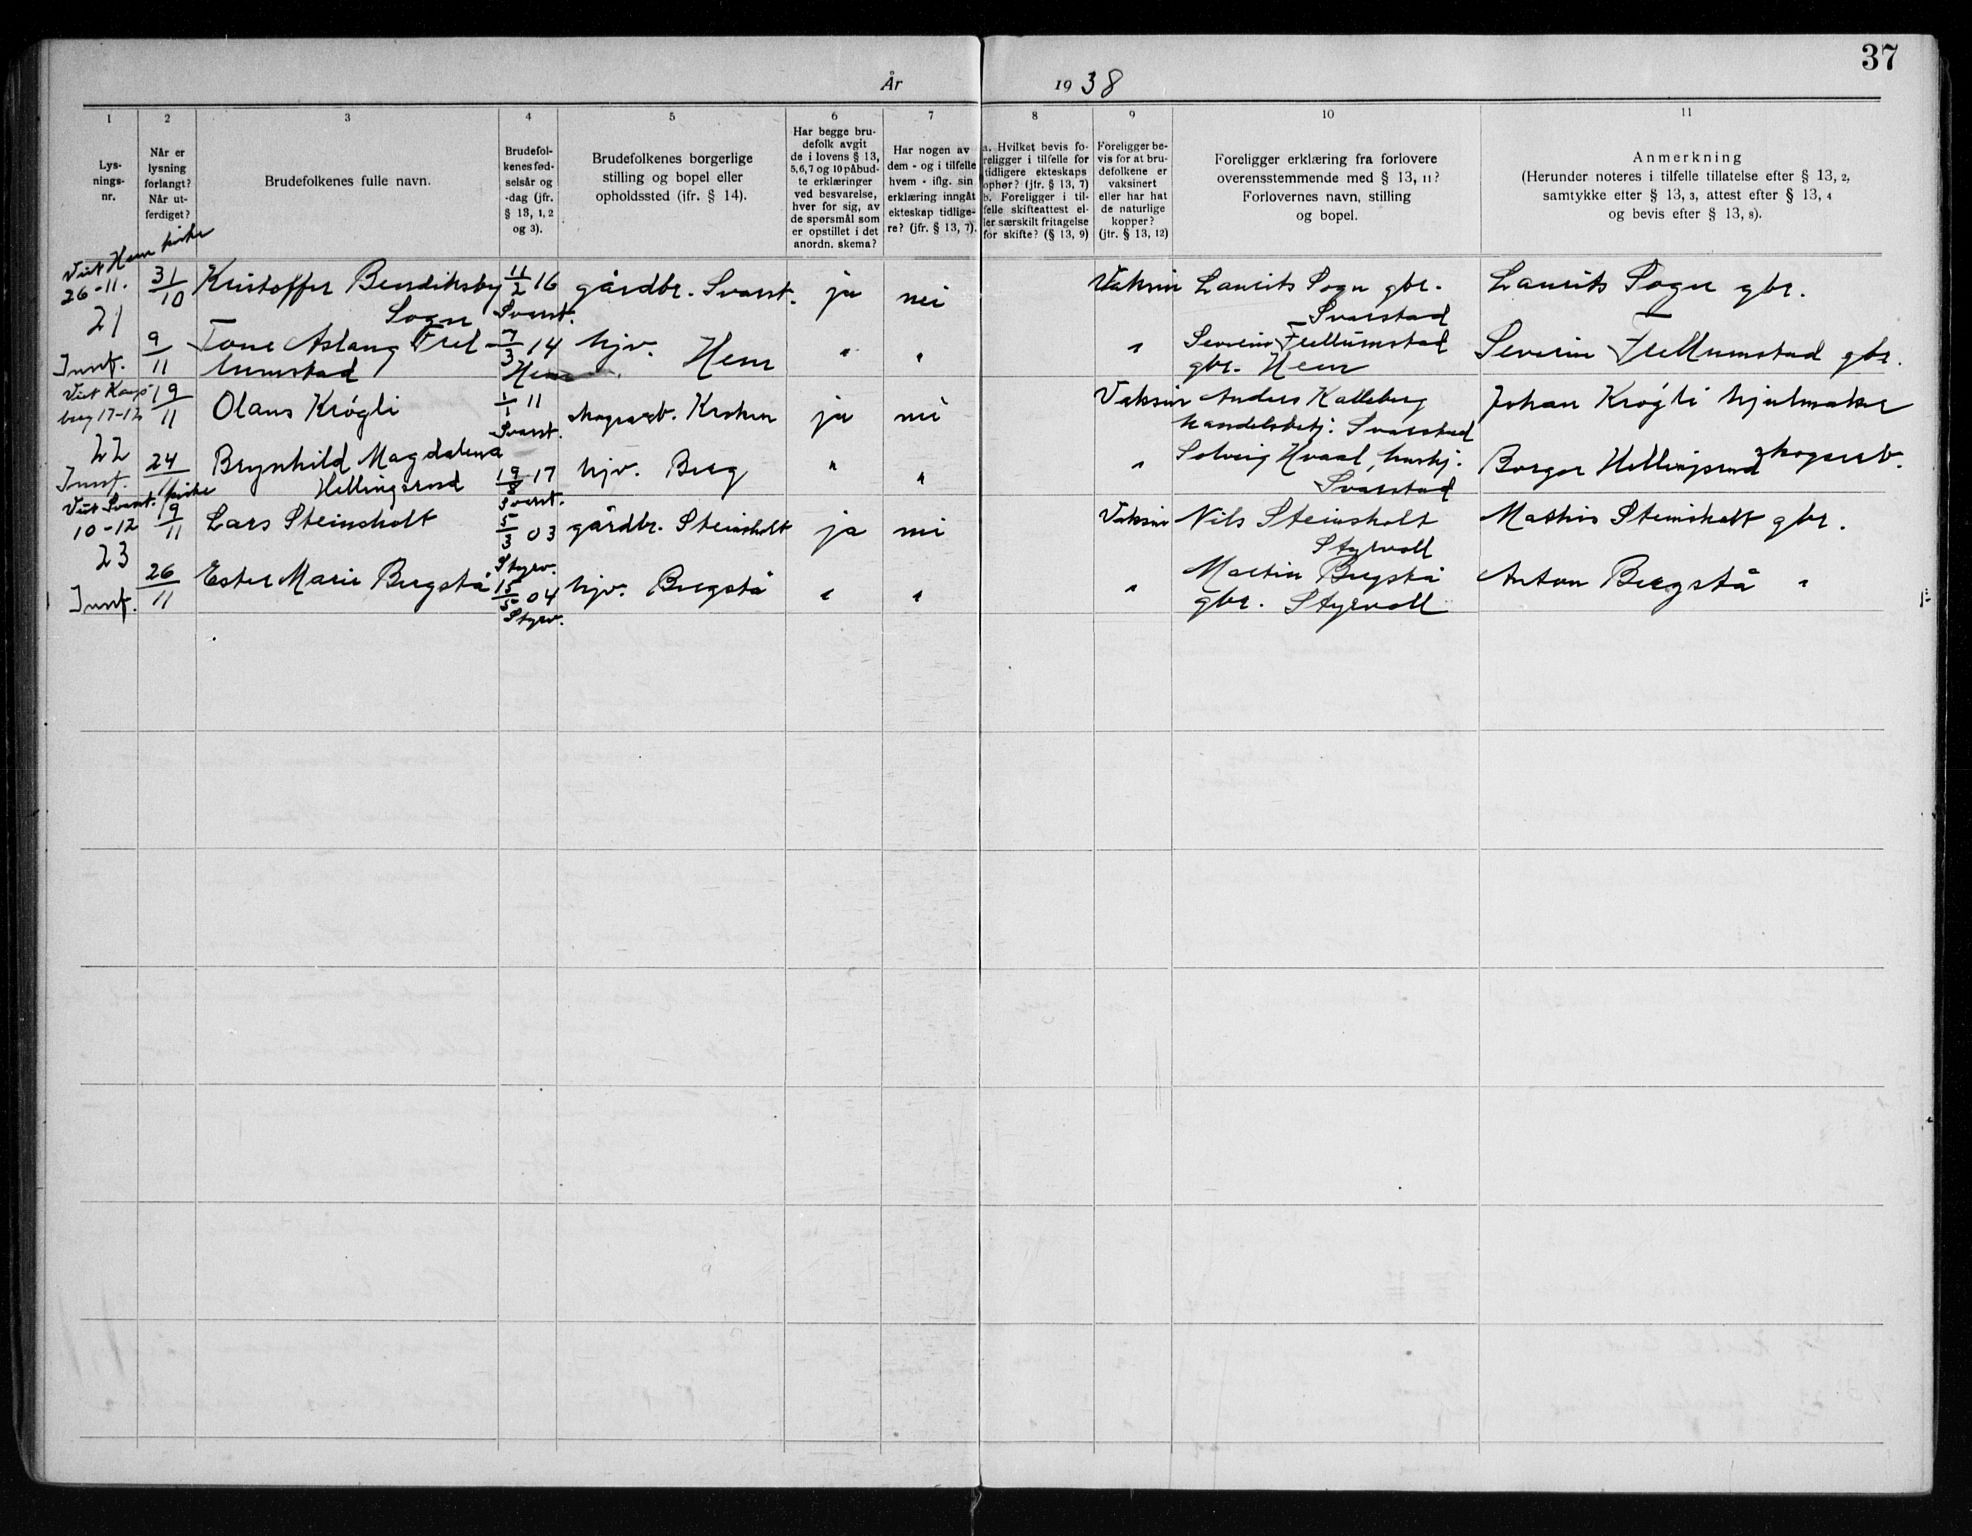 37
År 1938
1 2 3 4 5 6 7 8 9 10 11
Lys-
nings-
nr.
Når er
lysning
forlangt?
Når ut-
ferdiget?
Brudefolkenes fulle navn.
Brudefol-
kenes fød-
selsår og
-dag (jfr.
§ 13, 1, 2
og 3).
Brudefolkenes borgerlige
stilling og bopel eller
opholdssted (ifr. § 14).
Har begge bru-
defolk avgit
de i lovens § 13,
5,6,7 og 10 påbud-
te erklæringer
ved besvarelse,
hver for sig, av
de spørsmål som
er opstillet i det
anordn. skema?
Har nogen av
dem - og i tilfelle
hvem - iflg. sin
erklæring inngåt
ekteskap tidlige-
re? (jfr. § 13, 7).
a. Hvilket bevis fo-
religger i tilfelle for
tidligere ekteskaps
ophør? (jfr. § 13, 7)
b. Foreligger i til-
felle skifteattest el-
ler særskilt fritagelse
for skifte? (§ 13, 9)
Foreligger be-
vis for at bru-
defolkene er
vaksinert
eller har hat
de naturlige
kopper?
(jfr. § 13, 12)
Foreligger erklæring fra forlovere
overensstemmende med § 13, 11?
Forlovernes navn, stilling
og bopel.
Anmerkning
(Herunder noteres i tilfelle tillatelse efter § 13, 2,
samtykke efter § 13, 3, attest efter § 13, 4
og bevis efter § 13, 8).
Viet Hem kirke
26-11.
21
Innf.
31/10
Kristoffer Bendiksby
Sogn
11/2 16
Svarst.
gårdbr. Svarst.
ja
nei
Vaksin
Laurits Sogn gbr.
Svarstad
Laurits Sogn gbr.
9/11
Tone Aslaug Frel-
lumstad
7/3 14
Hem
hjv. Hem
"
"
"
Severin Frellumstad
gbr. Hem
Severin Frellumstad gbr.
Viet Kongs-
berg 17-12
22
Innf.
19/11
Olaus Krøgli
1/1 11
Svarst.
skogsarb. Kroken
ja
nei
Vaksin
Anders Kalleberg
handelsbetj. Svarstad
Johan Krøgli hjulmaker
24/11
Brynhild Magdalena
Hellingsrud
19/8 17
Svarst.
hjv. Berg
"
"
"
Solveig Hvaal, hushj.
Svarstad
Borger Hellingsrud skogsarb.
Viet Svarst. kirke
10-12
23
Innf.
19/11
Lars Steinsholt
5/3 03
Styrv.
gårdbr. Steinsholt
ja
nei
Vaksin
Nils Steinsholt
Styrvoll
Mathis Steinsholt gbr.
26/11
Ester Marie Bergstå
15/5 04
Styrv.
hjv. Bergstå
"
"
"
Martin Bergstå
gbr. Styrvoll
Anton Bergstå "